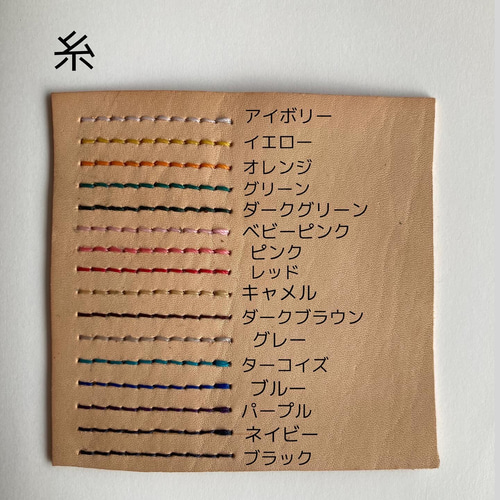 糸
アイボリー
イエロー
オレンジ
グリーン
ダークグリーン
ベビーピンク
ピンク
レッド
キャメル
ダークブラウン
グレー
ターコイズ
ブルー
パープル
ネイビー
ブラック